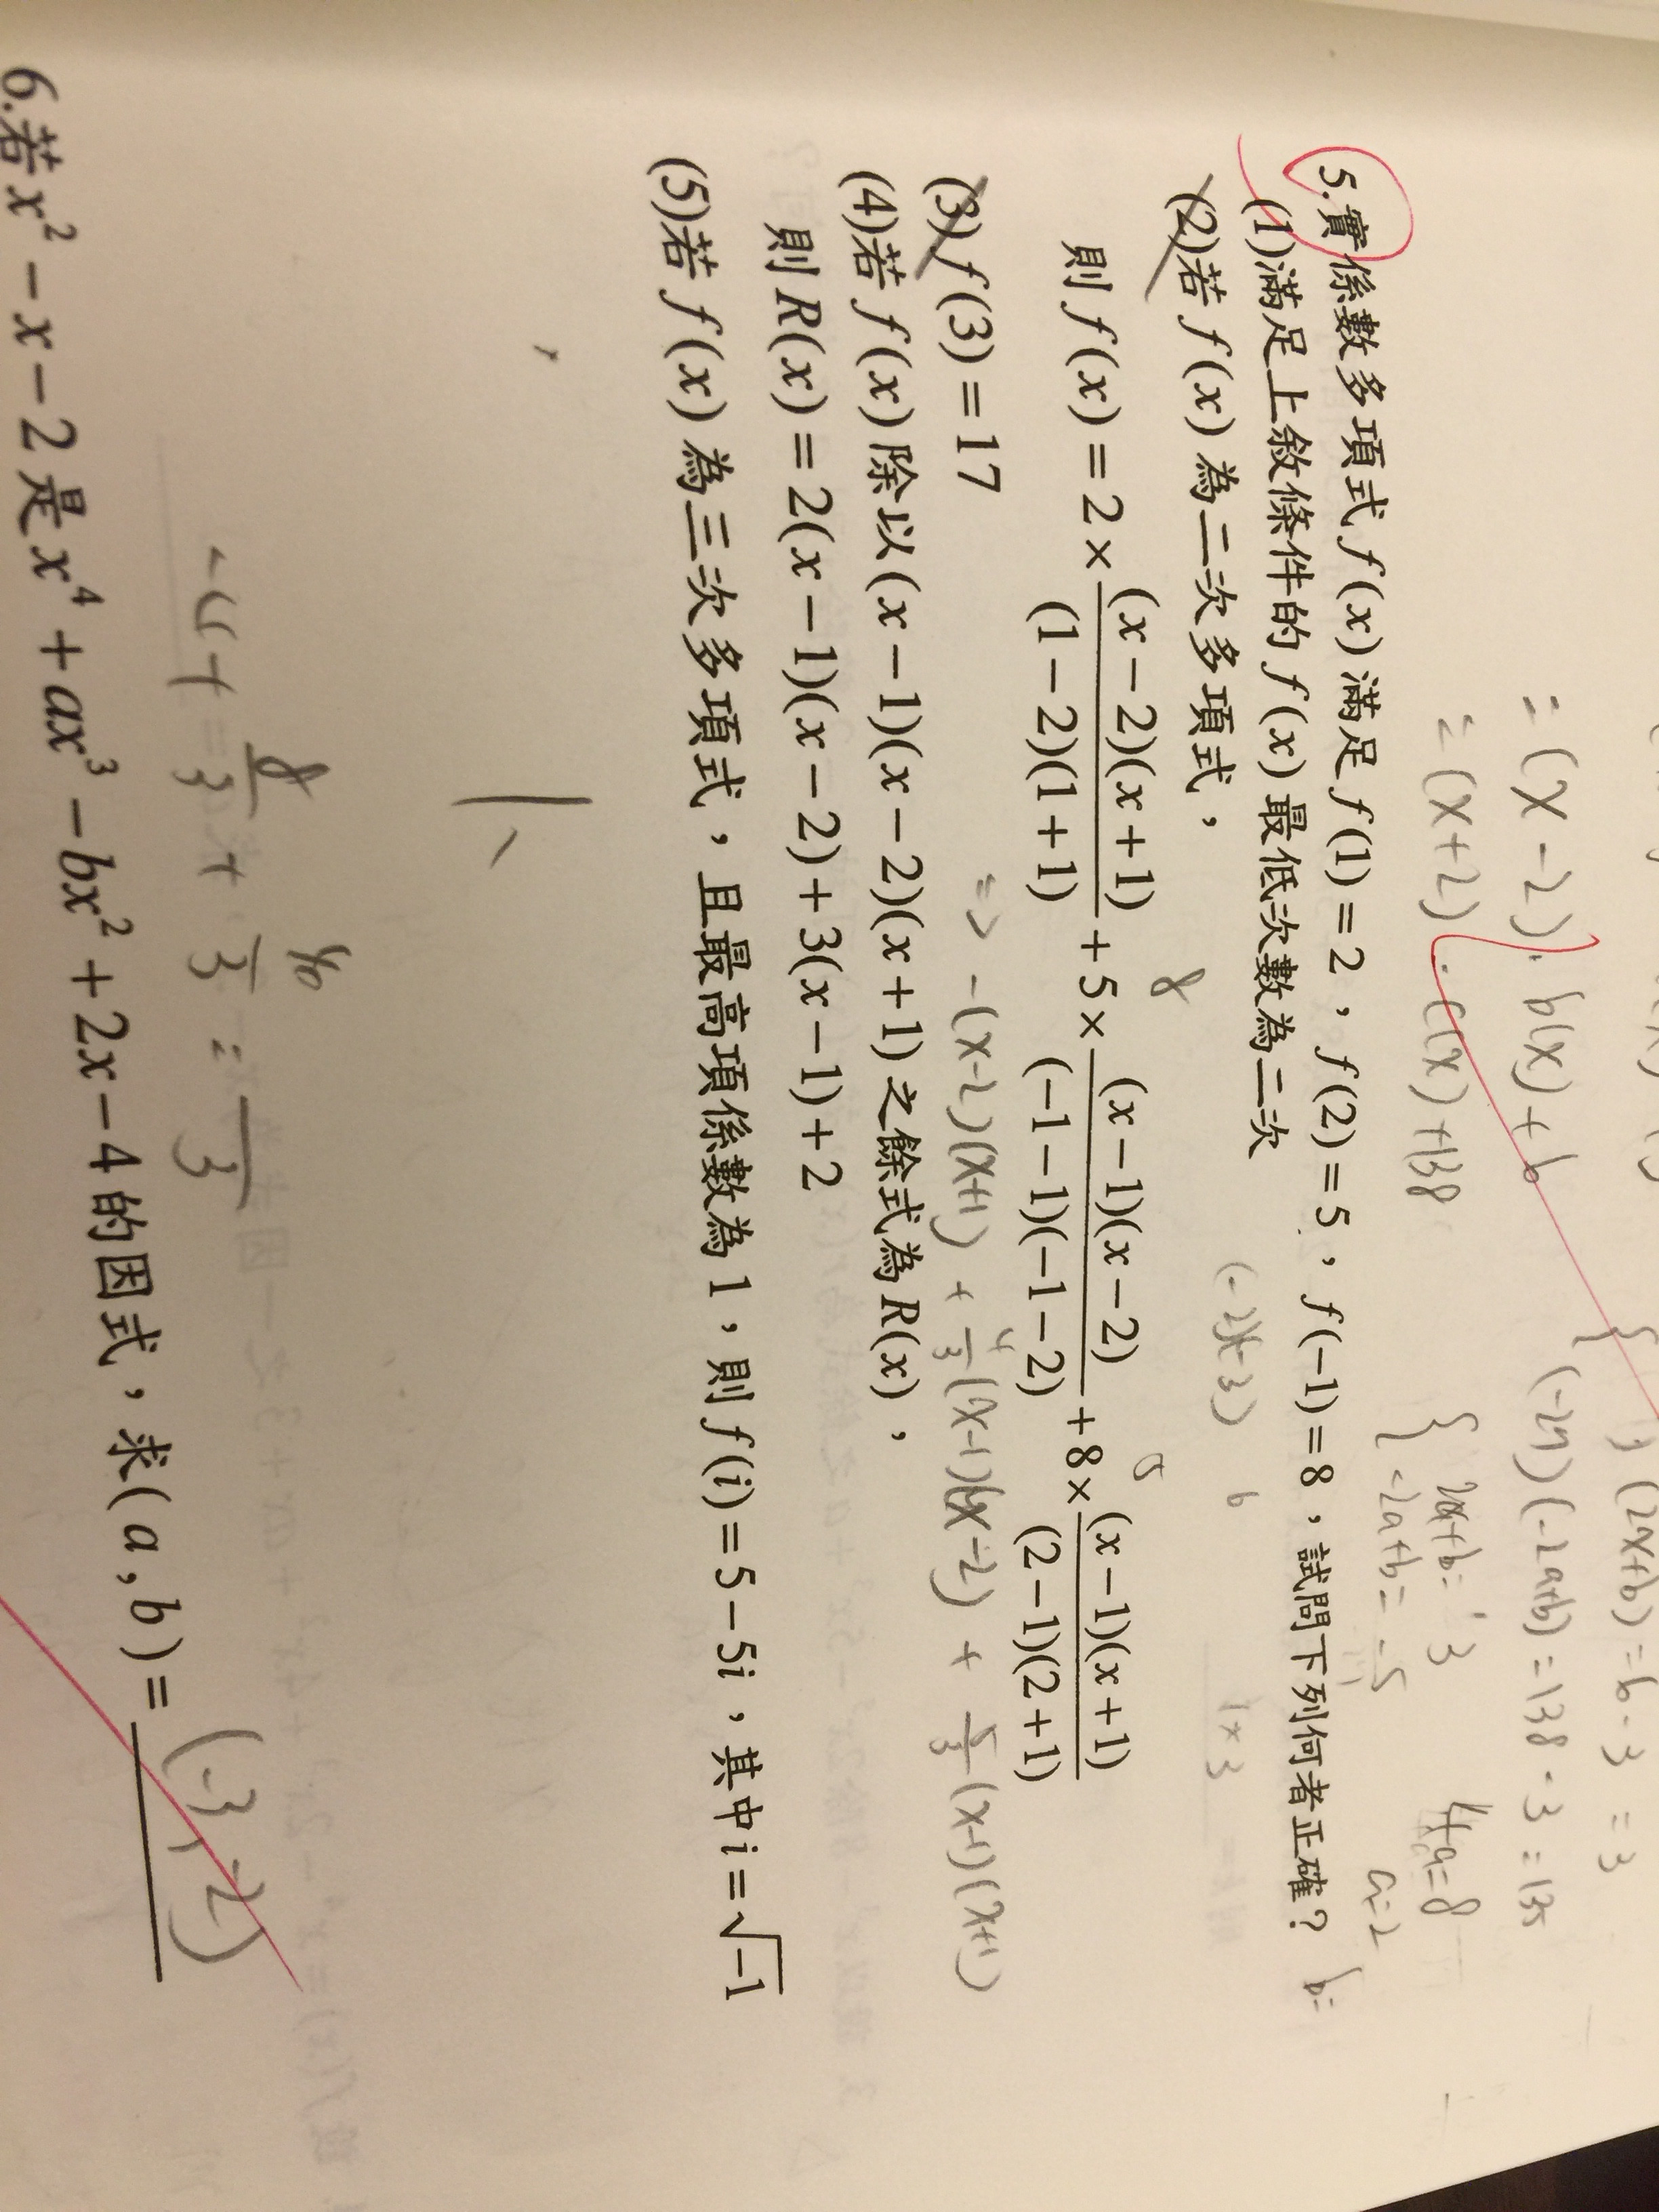 = (x-2)·b(x)+b
= (x+2)·c(x)+138
(2a+b)=6-3=3
(-27)(-2a+b)=138-3=135
{ 2a+b=3
-2a+b=-5
4a=8
a=2
b=
5.實係數多項式 f(x) 滿足 f(1)=2,f(2)=5,f(-1)=8,試問下列何者正確?
(1)滿足上敘條件的 f(x) 最低次數為二次
(-2)(-3) 6
1×3
(2)若 f(x) 為二次多項式,
8 5
則 f(x)=2×\frac{(x-2)(x+1)}{(1-2)(1+1)}+5×\frac{(x-1)(x-2)}{(-1-1)(-1-2)}+8×\frac{(x-1)(x+1)}{(2-1)(2+1)}
=> -(x-2)(x+1) + \frac{4}{3}(x-1)(x-2) + \frac{5}{3}(x-1)(x+1)
(3) f(3)=17
(4)若 f(x) 除以 (x-1)(x-2)(x+1) 之餘式為 R(x),
則 R(x)=2(x-1)(x-2)+3(x-1)+2
(5)若 f(x) 為三次多項式,且最高項係數為 1,則 f(i)=5-5i,其中 i=√-1
6.若 x² - x - 2 是 x⁴ + ax³ - bx² + 2x - 4 的因式,求(a,b)= (-3,-2)